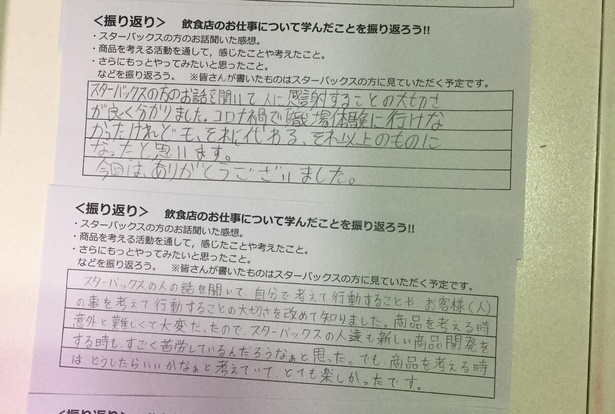 ＜振り返り＞　飲食店のお仕事について学んだことを振り返ろう!!
・スターバックスの方のお話聞いた感想。
・商品を考える活動を通して，感じたことや考えたこと。
・さらにもっとやってみたいと思ったこと。
などを振り返ろう。　※皆さんが書いたものはスターバックスの方に見ていただく予定です。
スターバックスの方のお話を聞いて人に感射することの大切さ
が良く分かりました。コロナ禍で職場体験に行けな
かったけれども、それに代わる、それ以上のものに
なったと思います。
今回は、ありがとうございました。
＜振り返り＞　飲食店のお仕事について学んだことを振り返ろう!!
・スターバックスの方のお話聞いた感想。
・商品を考える活動を通して，感じたことや考えたこと。
・さらにもっとやってみたいと思ったこと。
などを振り返ろう。　※皆さんが書いたものはスターバックスの方に見ていただく予定です。
スターバックスの人の話を聞いて、自分で考えて行動することや、お客様(人)
の事を考えて行動することの大切さを改めて知りました。商品を考える時
意外と難しくて大変だったので、スターバックスの人達も新しい商品開発を
する時も、すごく苦労しているんだろうなぁと思った。でも、商品を考える時
は、どうしたらいいかなぁと考えていて、とても楽しかったです。